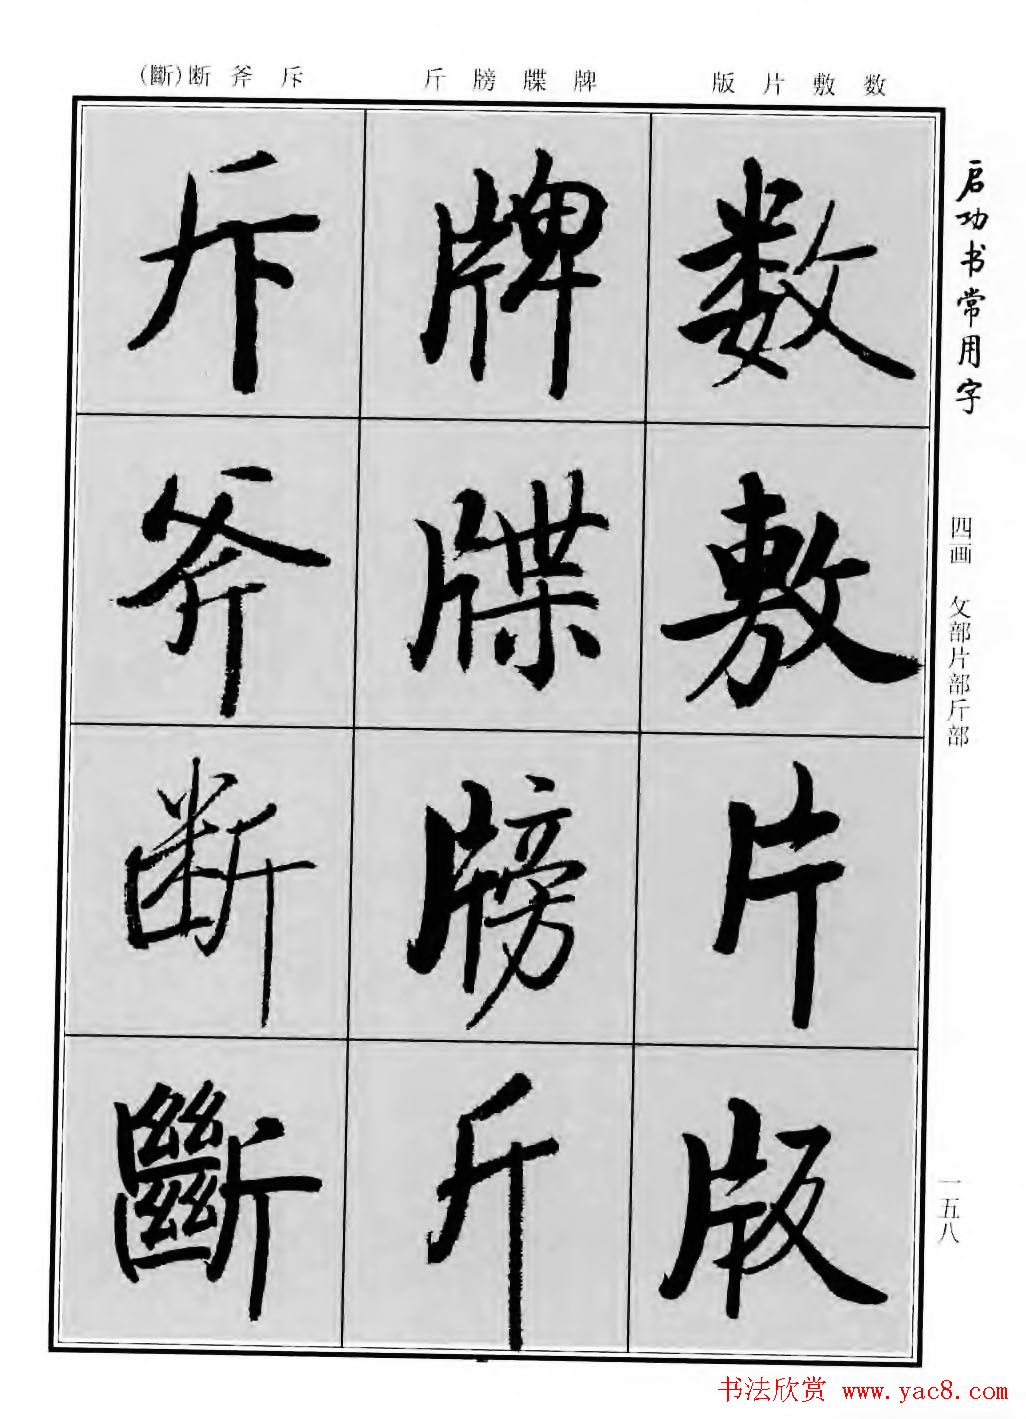 数敷片版
牌牒牓斤
斥斧断(斷)
启功书常用字
四画 攵部片部斤部
一五八
数
敷
片
版
牌
牒
牓
斤
斥
斧
断
斷
书法欣赏 www.yac8.com